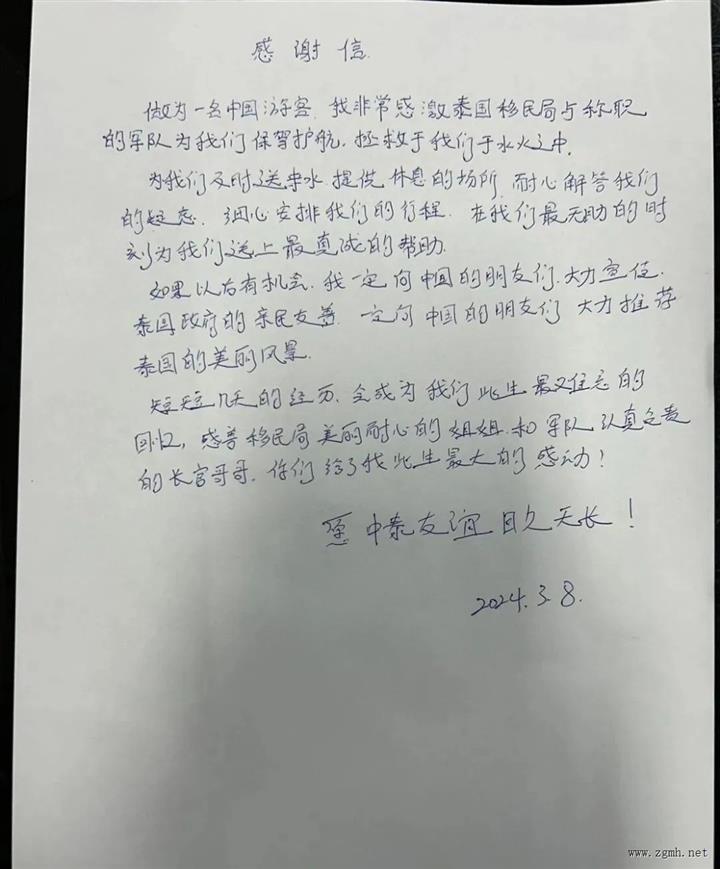 感谢信
做为一名中国游客.我非常感激泰国移民局与称职
的军队为我们保驾护航.拯救于我们于水火之中.
为我们及时送来水.提供休息的场所.耐心解答我们
的疑惑.细心安排我们的行程.在我们最无助的时
刻为我们送上最真诚的帮助.
如果以后有机会.我一定向中国的朋友们.大力宣传.
泰国政府的亲民友善.一定向中国的朋友们大力推荐
泰国的美丽风景.
短短几天的经历.会成为我们此生最难忘的
回忆,感谢移民局美丽耐心的姐姐.和军队认真负责
的长官哥哥.你们给了我此生最大的感动!
愿中泰友谊日久天长!
2024.3.8.
www.zgmh.net